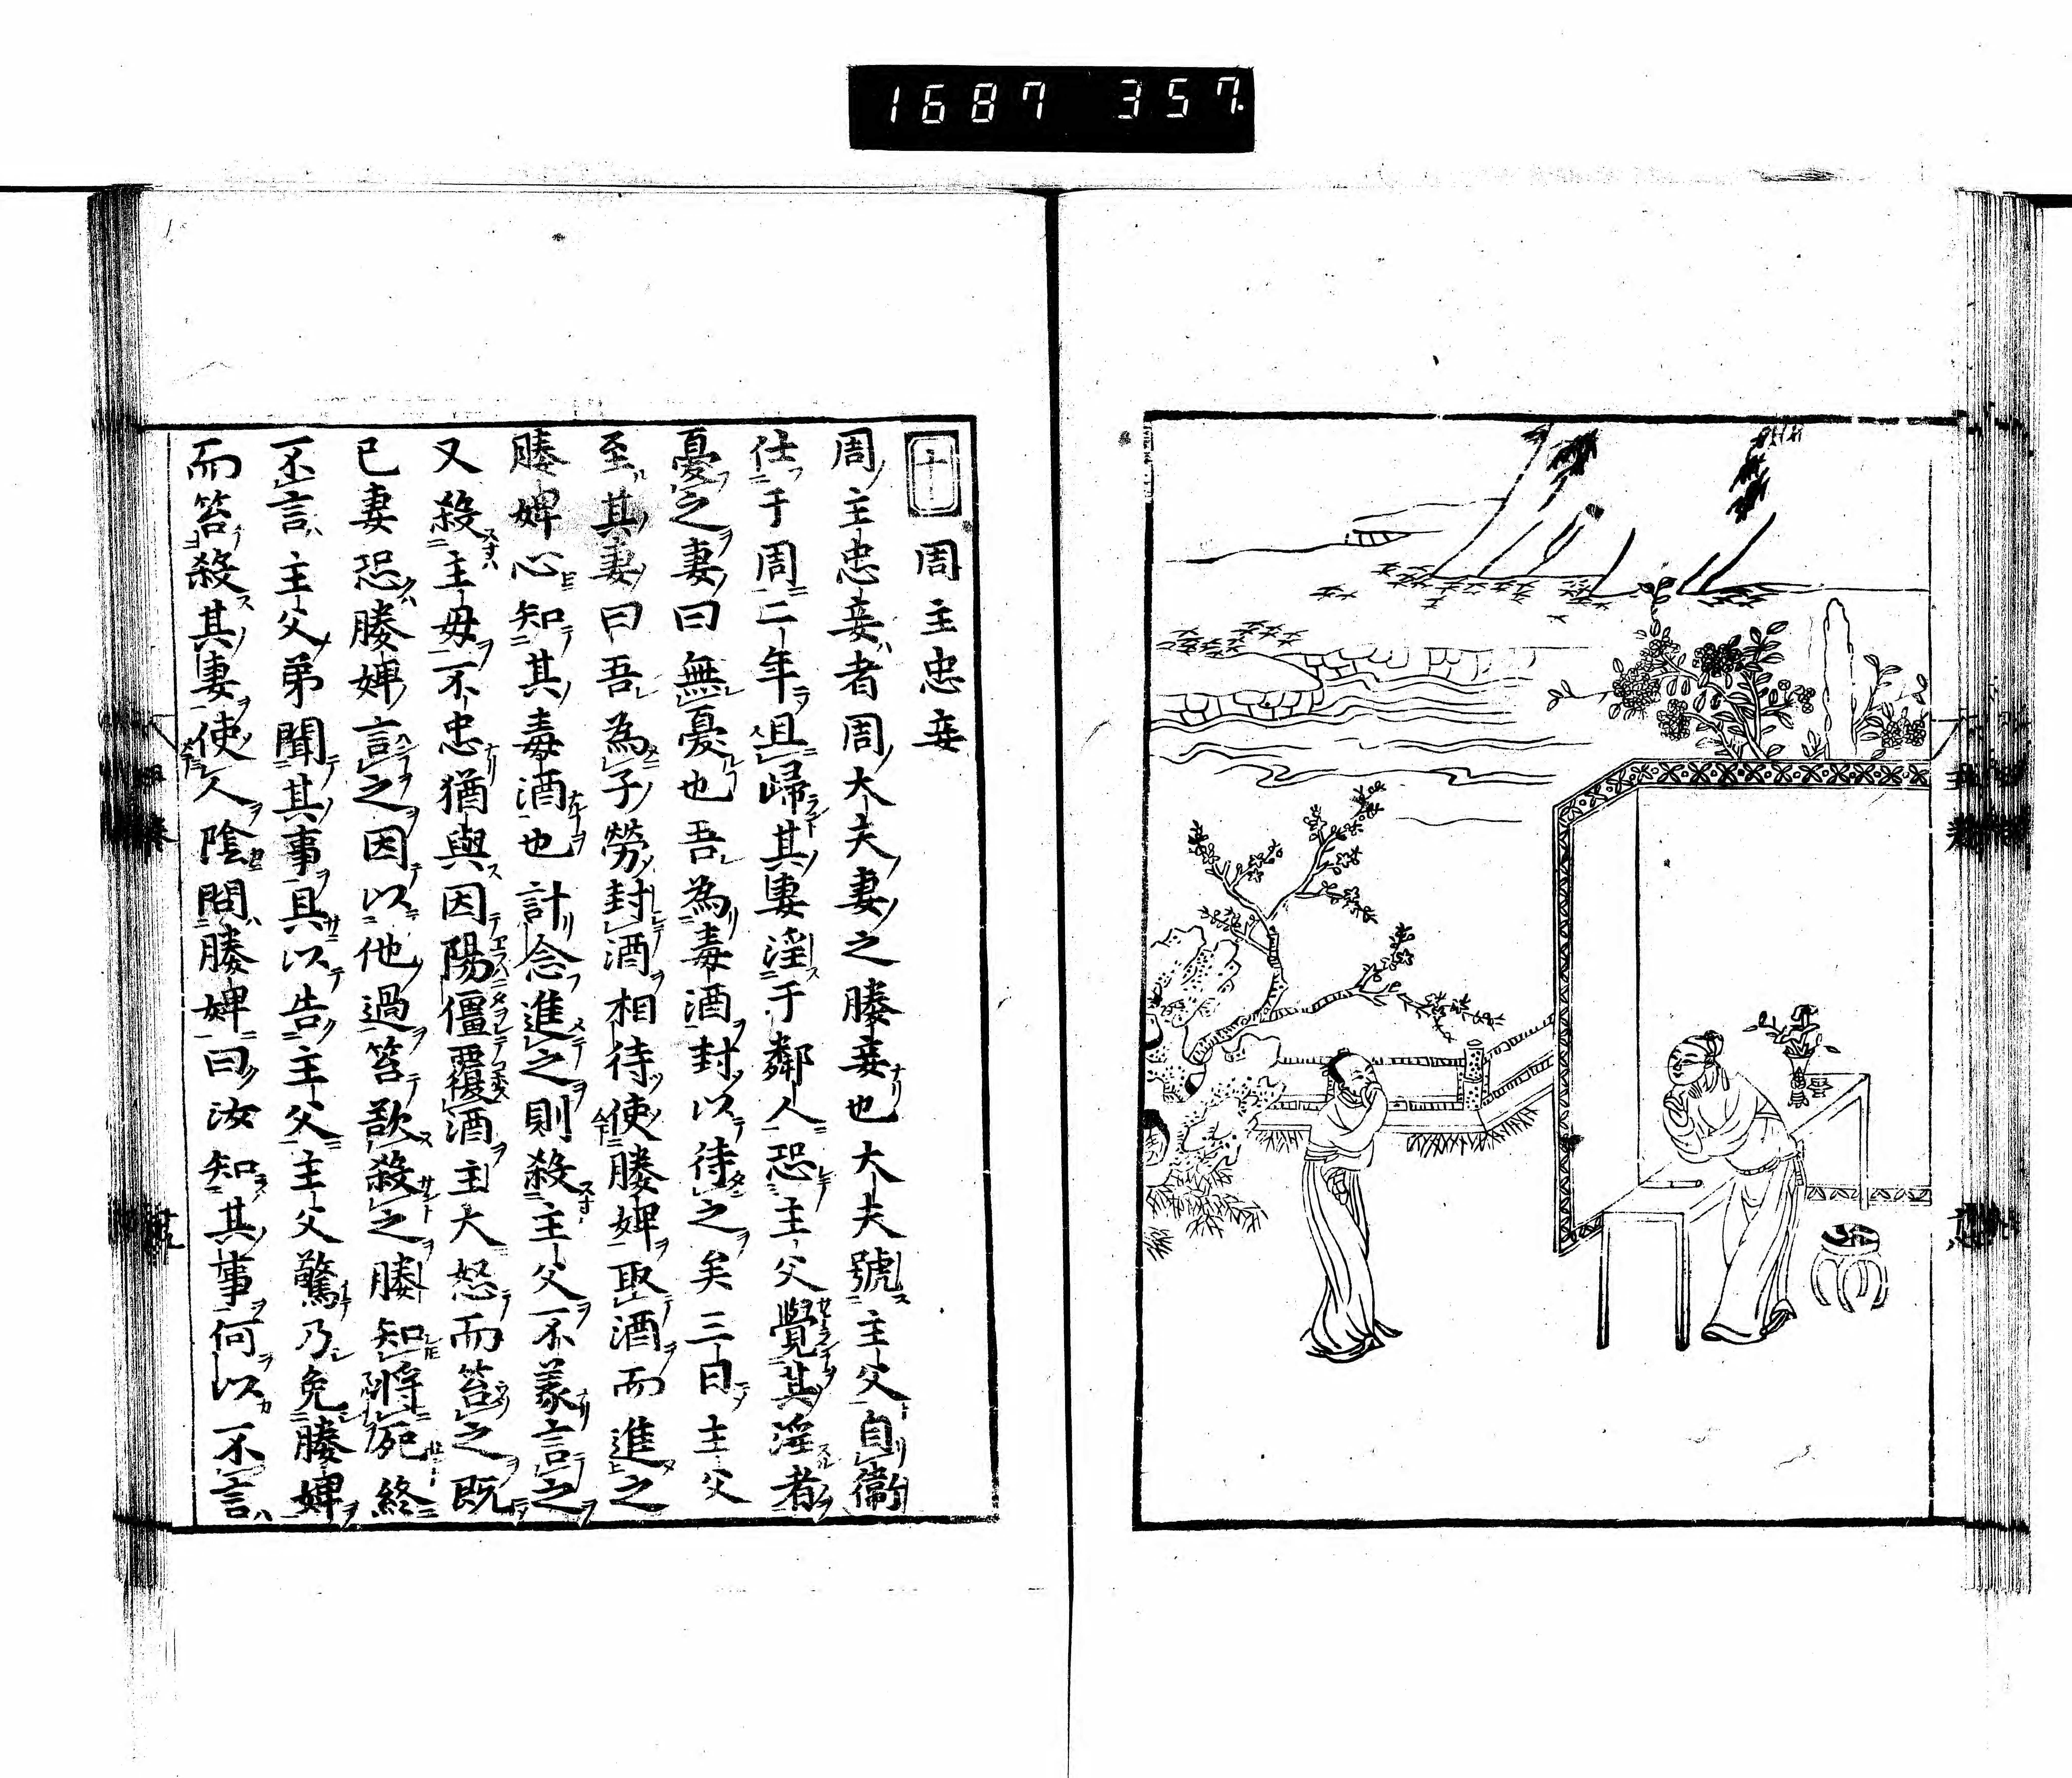 1687 357
十一 周主忠妾
周主忠妾者周大夫妻之媵妾也大夫號主父自衞
仕于周二年且歸其妻淫于鄰人恐主父覺其淫者
憂之妻曰無憂也吾為毒酒封以待之矣三日主父
至其妻曰吾為子勞封酒相待使媵婢取酒而進之
媵婢心知其毒酒也計念進之則殺主父不義言之
又殺主母不忠猶與因陽僵覆酒主大怒而笞之既
已妻恐媵婢言之因以他過笞欲殺之媵知將死終
不言主父弟聞其事具以告主父主父驚乃免媵婢
而笞殺其妻使人陰問媵婢曰汝知其事何以不言